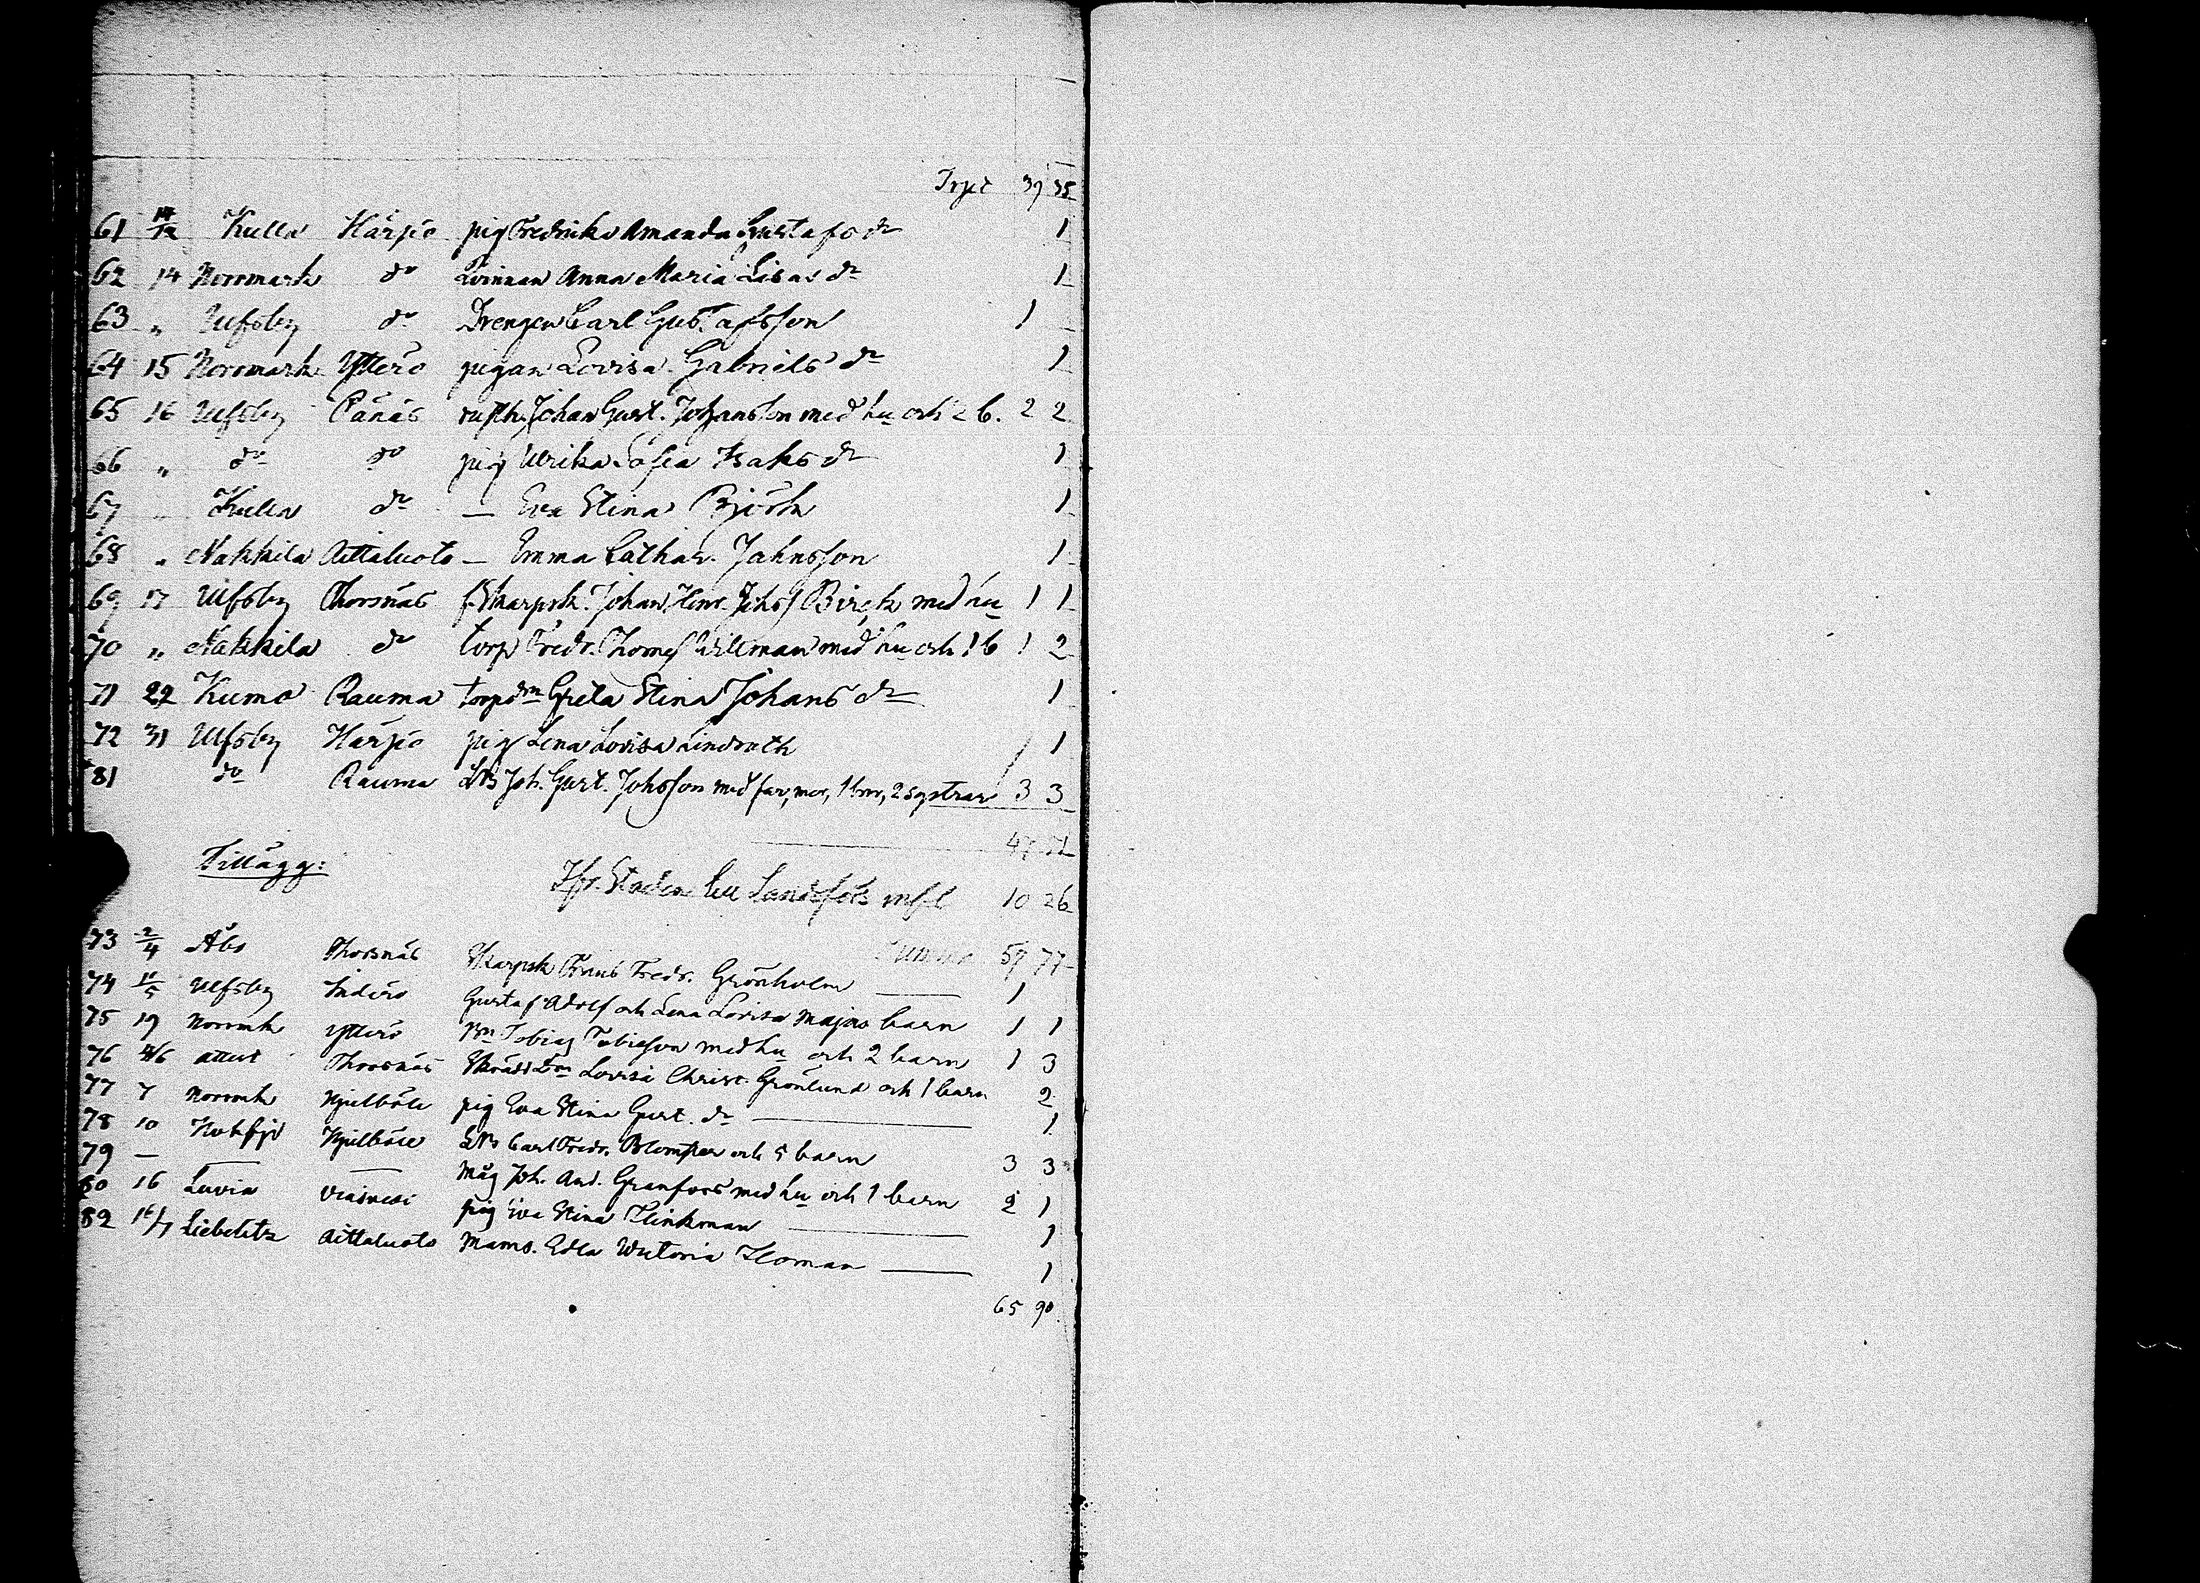 Trpt 37 35
61 14/12 Kulla Härpö pig Fredrika Amanda Gustafs dr 1
62 14 Norrmark do Qvinnan Anna Maria Lisas dr 1
63 " Ulfsby do Drengen Carl Gustafsson 1
64 15 Norrmark Ytterö pigan Lovisa Gabriels dr 1
65 16 Ulfsby Pänäs rusth. Johan Gust. Johansson med hu och 2 b. 2 2
66 " do do pig Ulrika Sofia Isaks dr 1
67 Kulla do — Eva Stina Björk 1
68 " Nakkila Aittaluoto — Emma Cathar. Johnsson 1
69 17 Ulfsby Thorsnäs f. Skarpsk. Johan Henr. Johss Birck med hu 1 1
70 " Nakkila do torp Fredr. Thomes Willman med hu och 1 b 1 2
71 22 Kumo Rauma torp dm Greta Stina Johans dr 1
72 31 Ulfsby Härpö pig Lena Lovisa Lindroth 1
81 do Rauma Joh. Gust. Johsson med far, mor, 1 bror, 2 systrar 3 3
47 51
Tillägg:
Ifr. Staden till Landsförs 10 26
Summa 57 77
73 2/4 Åbo Thorsnäs Skarpsk Frans Fredr. Grönholm 1
74 11/5 Ulfsby Inderö Gustaf Adolf och Lena Lovisa Majas barn 1 1
75 19 Norrmk Ytterö Bn Tobias Tobiasson med hu och 2 barn 1 3
76 4/6 attest Thorsnäs Skrädd. Lovisa Christ. Grönlund och 1 barn 2
77 7 Norrmk Kjulböle pig Eva Stina Gust. dr 1
78 10 Hvitisjo Kjulböle Carl Fredr. Blomster och 5 barn 3 3
79 — — — Måg Joh. And. Granfors med hu och 1 barn 2 1
80 16 Luvia Viasvesi pig Eva Stina Klinkman 1
82 16/7 Liebelitz Aittaluoto Mams. Edla Wictoria Floman 1
65 90